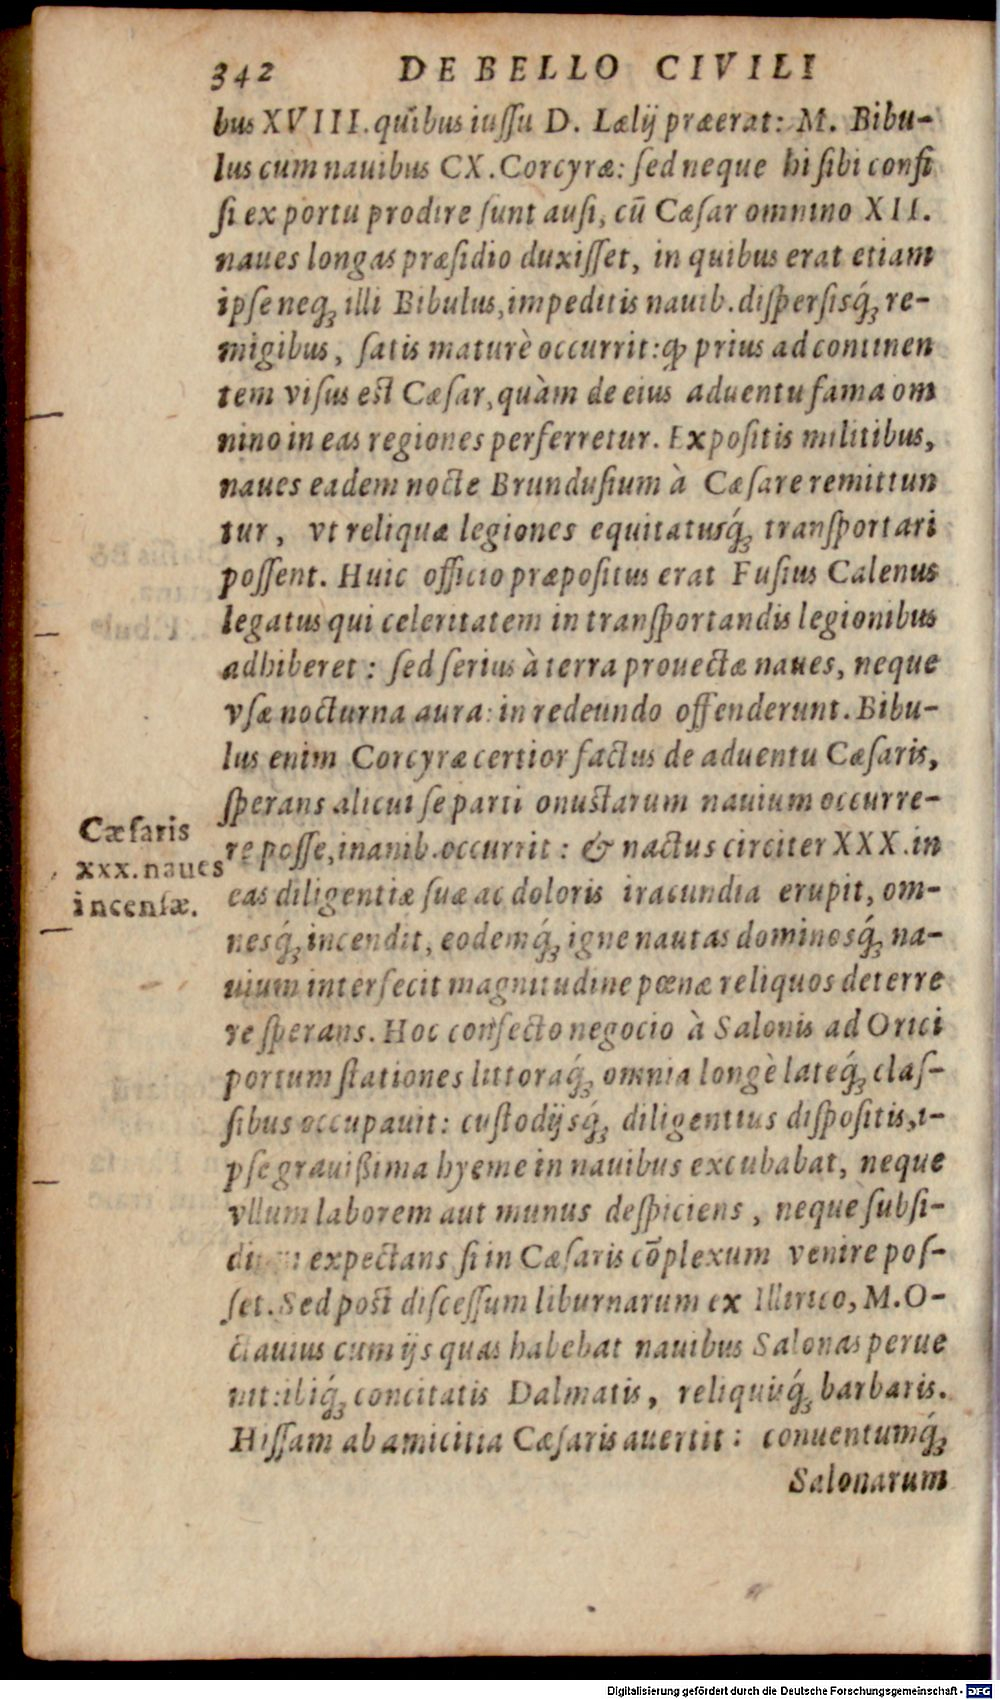 342 DE BELLO CIVILI
bus XVIII. quibus iussu D. Lælij præerat: M. Bibu-
lus cum nauibus CX. Corcyræ: sed neque hi sibi confi
si ex portu prodire sunt ausi, cū Cæsar omnino XII.
naues longas præsidio duxisset, in quibus erat etiam
ipse neq́; illi Bibulus, impeditis nauib. dispersisq́; re-
migibus, satis maturè occurrit: ꝙ prius ad continen
tem visus est Cæsar, quàm de eius aduentu fama om
nino in eas regiones perferretur. Expositis militibus,
naues eadem nocte Brundusium à Cæsare remittun
tur, vt reliquæ legiones equitatusq́; transportari
possent. Huic officio præpositus erat Fusius Calenus
legatus qui celeritatem in transportandis legionibus
adhiberet: sed serius à terra prouectæ naues, neque
vsæ nocturna aura: in redeundo offenderunt. Bibu-
lus enim Corcyræ certior factus de aduentu Cæsaris,
sperans alicui se parti onustarum nauium occurre-
re posse, inanib. occurrit: & nactus circiter XXX. in
eas diligentiæ suæ ac doloris iracundia erupit, om-
nesq́; incendit, eodemq́; igne nautas dominosq́; na-
uium interfecit magnitudine pœnæ reliquos deterre
re sperans. Hoc confecto negocio à Salonis ad Orici
portum stationes littoraq́; omnia longè lateq́; clas-
sibus occupauit: custodijsq́; diligentius dispositis, i-
pse grauißima hyeme in nauibus excubabat, neque
vllum laborem aut munus despiciens, neque subsi-
dium expectans si in Cæsaris cōplexum venire pos-
set. Sed post discessum liburnarum ex Illirico, M. O-
ctauius cum ijs quas habebat nauibus Salonas perue
nit: ibiq́; concitatis Dalmatis, reliquisq́; barbaris.
Hissam ab amicitia Cæsaris auertit: conuentumq́;
Salonarum
Cæsaris
xxx. naues
incensæ.
Digitalisierung gefördert durch die Deutsche Forschungsgemeinschaft - DFG